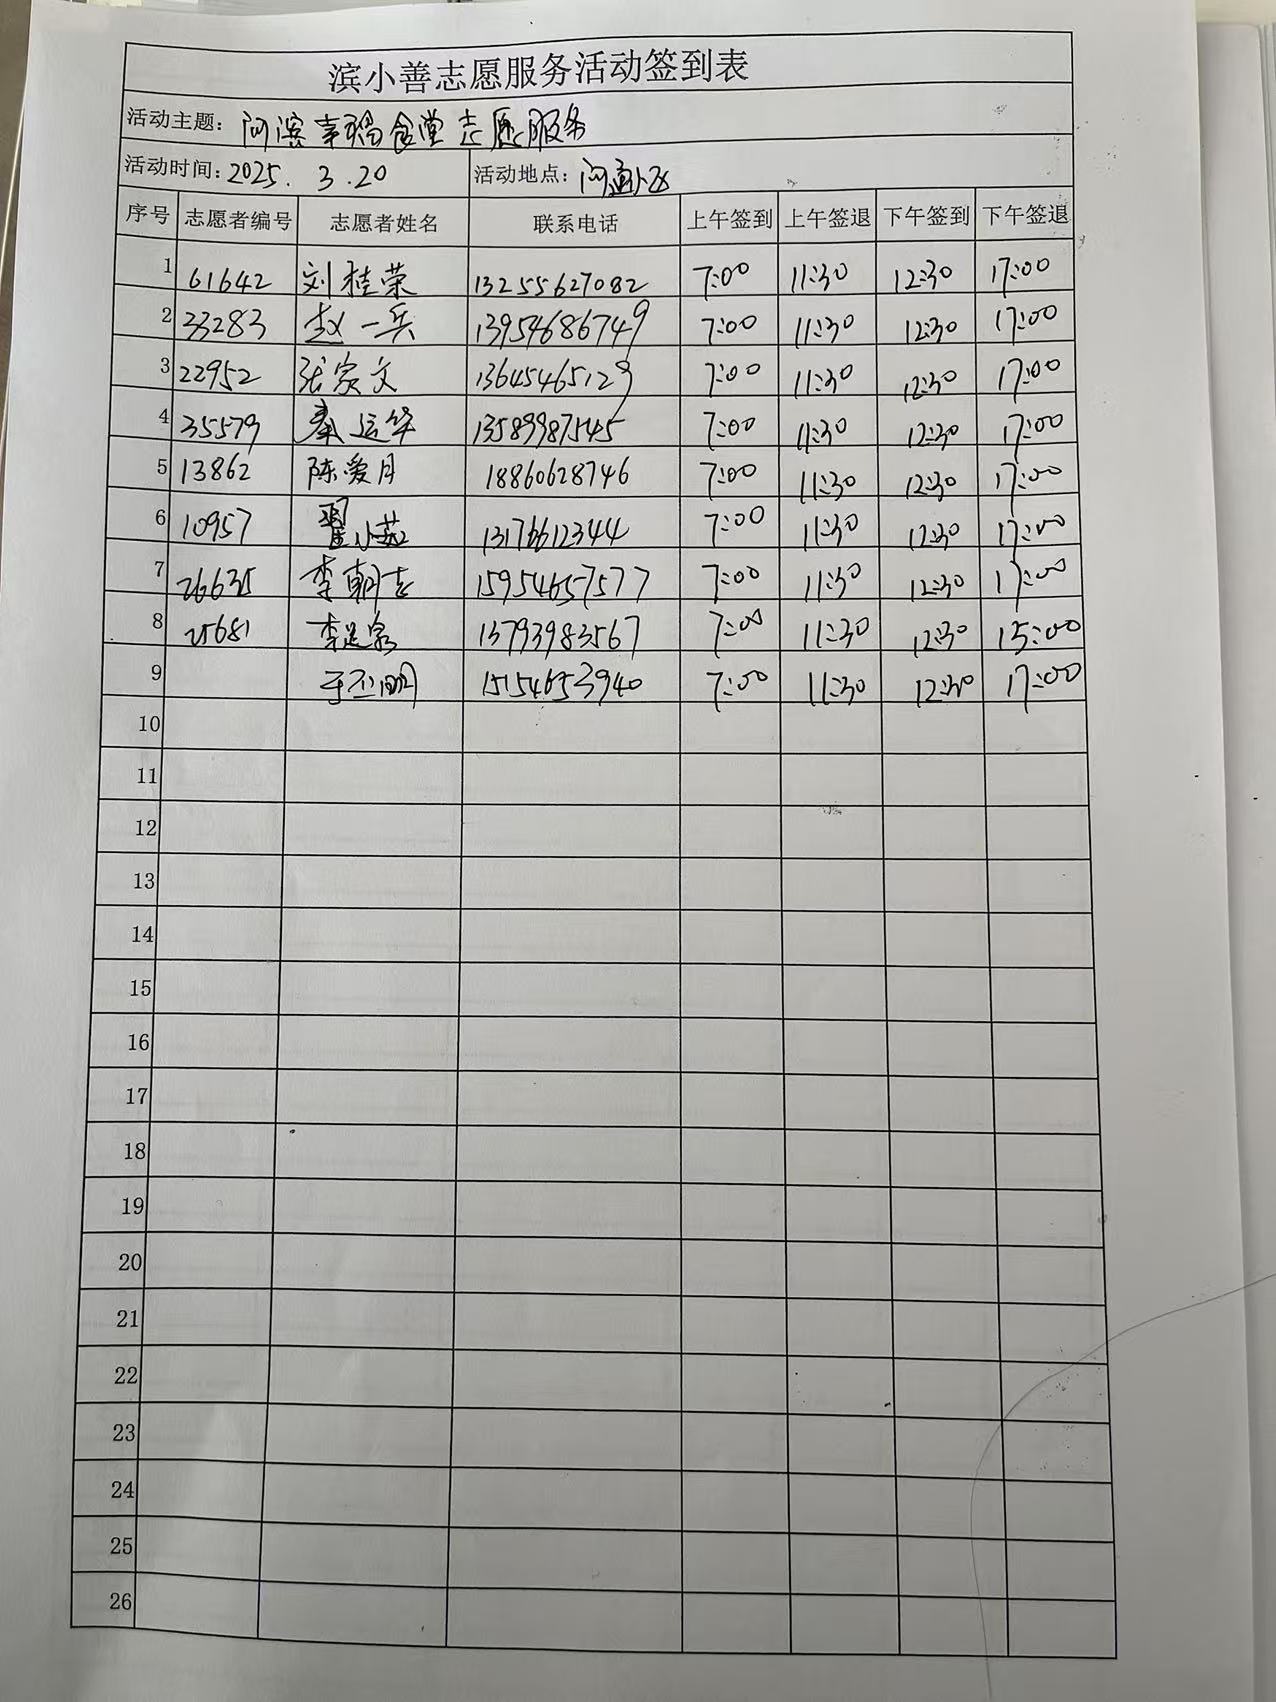 滨小善志愿服务活动签到表
活动主题: 河滨幸福食堂志愿服务
活动时间: 2025. 3.20 活动地点:
序号 志愿者编号 志愿者姓名 联系电话 上午签到 上午签退 下午签到 下午签退
1 61642 刘桂荣 13255627082 7:00 11:30 12:30 17:00
2 33283 赵一兵 13954686749 7:00 11:30 12:30 17:00
3 22952 张家文 13645465129 7:00 11:30 12:30 17:00
4 35579 秦运华 13589987545 7:00 11:30 12:30 17:00
5 13862 陈爱月 18860628746 7:00 11:30 12:30 17:00
6 10957 翟小茹 13176612344 7:00 11:30 12:30 17:00
7 26635 李朝志 15954657577 7:00 11:30 12:30 17:00
8 25681 13793983567 7:00 11:30 12:30 15:00
9 15154653940 7:00 11:30 12:30 17:00
10
11
12
13
14
15
16
17
18
19
20
21
22
23
24
25
26